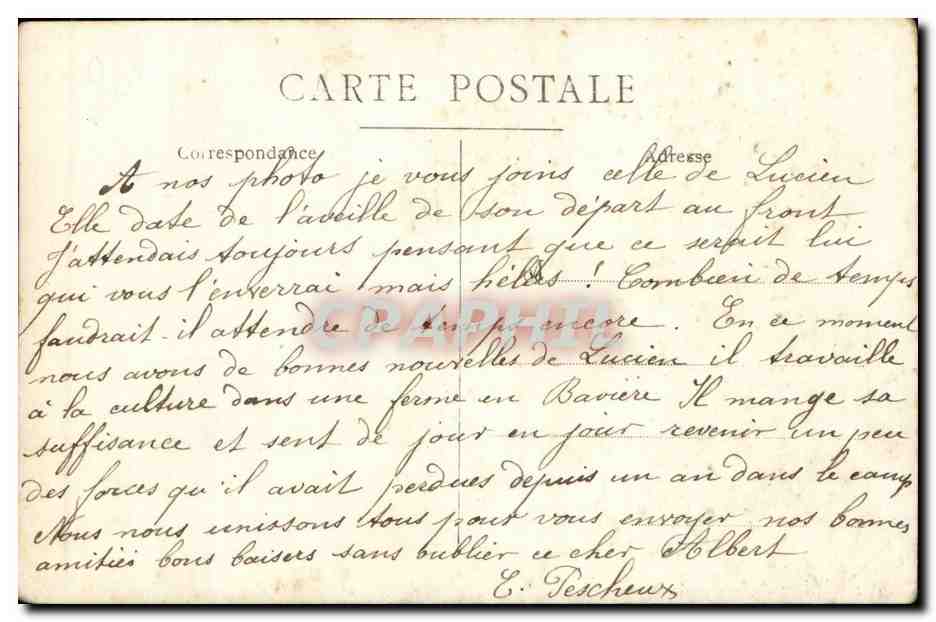 CARTE POSTALE
Correspondance
Adresse
A nos photo je vous joins celle de Lucien
Elle date de l'aveille de son départ au front
J'attendais toujours pensant que ce serait lui
qui vous l'enverrai mais hélas ! Combien de temps
faudrait-il attendre de temps encore. En ce moment
nous avons de bonnes nouvelles de Lucien il travaille
à la culture dans une ferme en Bavière Il mange sa
suffisance et sent de jour en jour revenir un peu
des forces qu'il avait perdues depuis un an dans le camp
Nous nous unissons tous pour vous envoyer nos bonnes
amitiés bons baisers sans oublier ce cher Albert
E. Tescheux
CPAPHIL